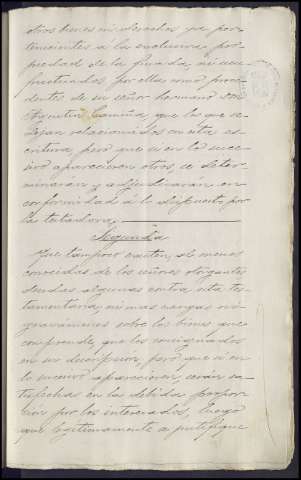 otros bienes ni derechos ya per-
tenecientes a la exclusiva pro-
piedad de la finada, ni usu-
fructuados por ella como proce-
dentes de su señor hermano don
Agustín que los que se
dejan relacionados en esta es-
critura, pero que si en lo suce-
sivo aparecieren otros, se deter-
minarán y adjudicarán en
conformidad á lo dispuesto por
la testadora.
Segunda
Que tampoco existen, al menos
conocidas de los señores otorgantes
deudas algunas contra esta tes-
tamentaria, ni mas cargas ni
gravámenes sobre los bienes que
comprende, que los consignados
en su descripcion, pero que si en
lo sucesivo aparecieren, serán sa-
tisfechas en la debida propor-
cion por los interesados, luego
que legitimamente se justifique